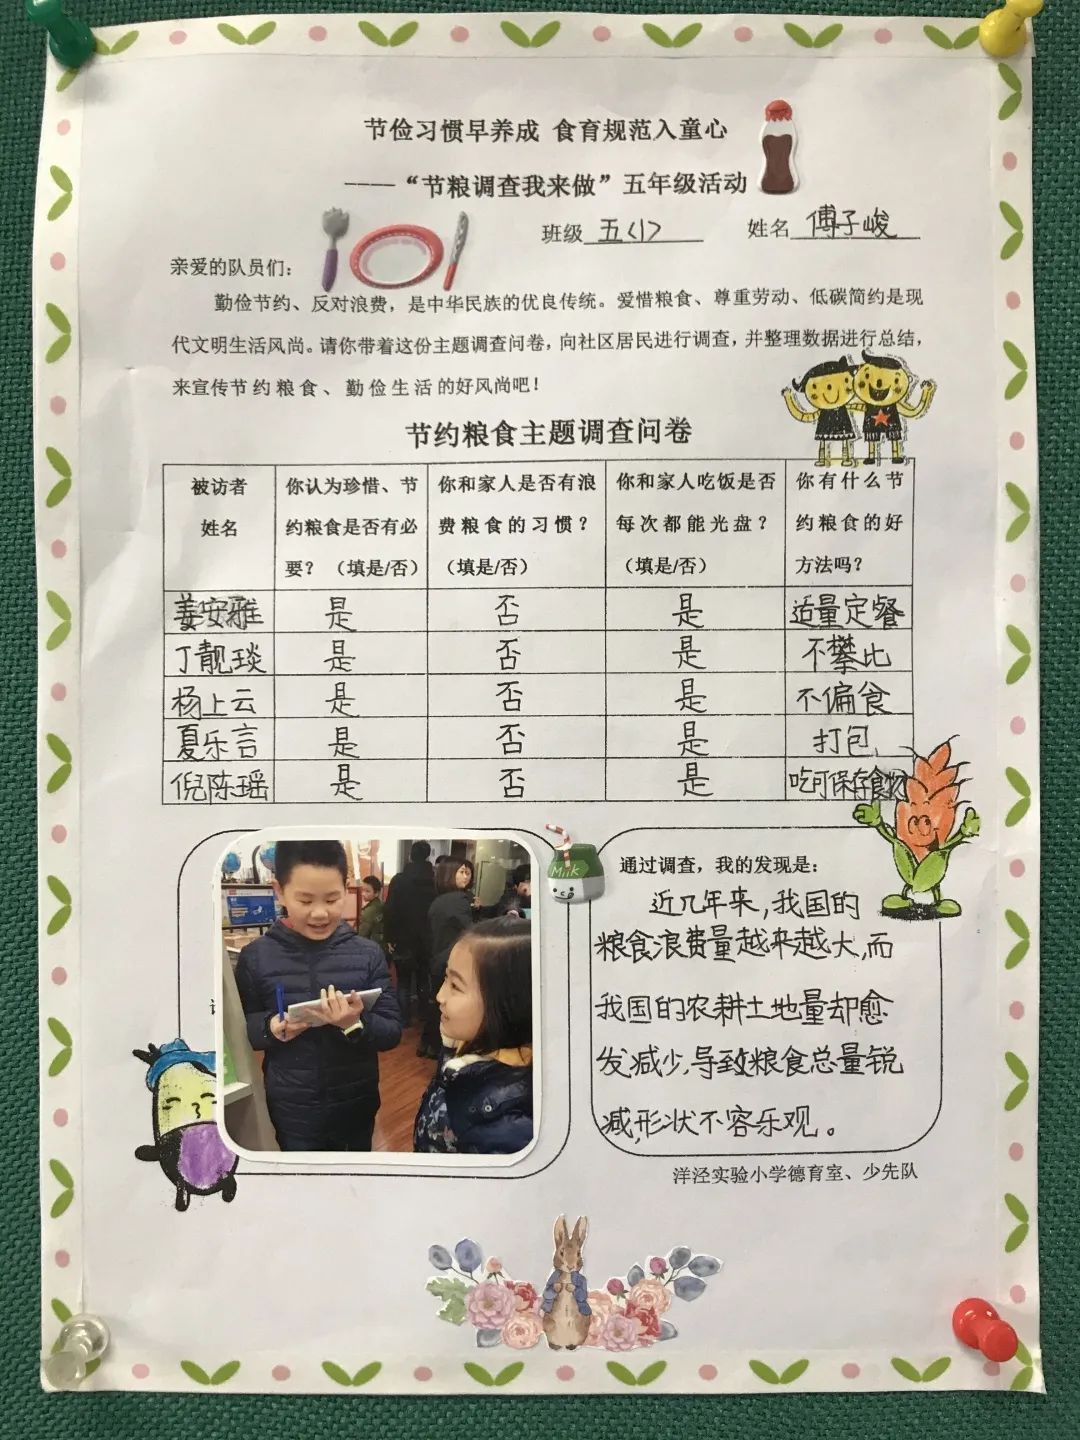 节俭习惯早养成 食育规范入童心
----“节粮调查我来做”五年级活动
班级 五<1> 姓名 傅子峻
亲爱的队员们：
勤俭节约、反对浪费，是中华民族的优良传统。爱惜粮食、尊重劳动、低碳简约是现
代文明生活风尚。请你带着这份主题调查问卷，向社区居民进行调查，并整理数据进行总结，
来宣传节约粮食、勤俭生活的好风尚吧！
节约粮食主题调查问卷
被访者姓名 你认为珍惜、节约粮食是否有必要？（填是/否） 你和家人是否有浪费粮食的习惯？（填是/否） 你和家人吃饭是否每次都能光盘？（填是/否） 你有什么节约粮食的好方法吗？
姜安雅 是 否 是 适量定餐
丁靓琰 是 否 是 不攀比
杨上云 是 否 是 不偏食
夏乐言 是 否 是 打包
倪陈瑶 是 否 是 吃可保存食物
Milk
通过调查，我的发现是：
近几年来，我国的
粮食浪费量越来越大，而
我国的农耕土地量却愈
发减少，导致粮食总量锐
减，形状不容乐观。
洋泾实验小学德育室、少先队